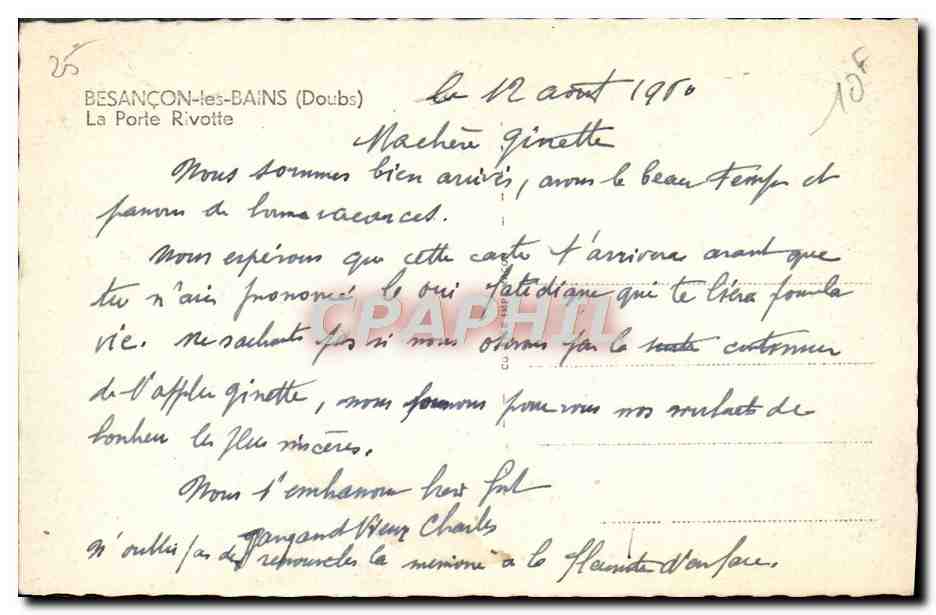 25
10F
BESANÇON-les-BAINS (Doubs)
La Porte Rivotte
le 12 août 1960
Machère Ginette
Nous sommes bien arrivés, avons le beau temps et
passons de bonne vacances.
Nous espérons que cette carte t'arrivera avant que
tu n'ais prononcé le oui qui te liera pour la
vie. ne sachants pas si nous oserons par la suite continuer
de t'appler Ginette, nous formons pour vous nos souhaits de
bonheur les plus sincères.
Nous t'embrassons bien fort
Charles
n'oublie pas de renouveler la mémoire à la
CPAPHIL